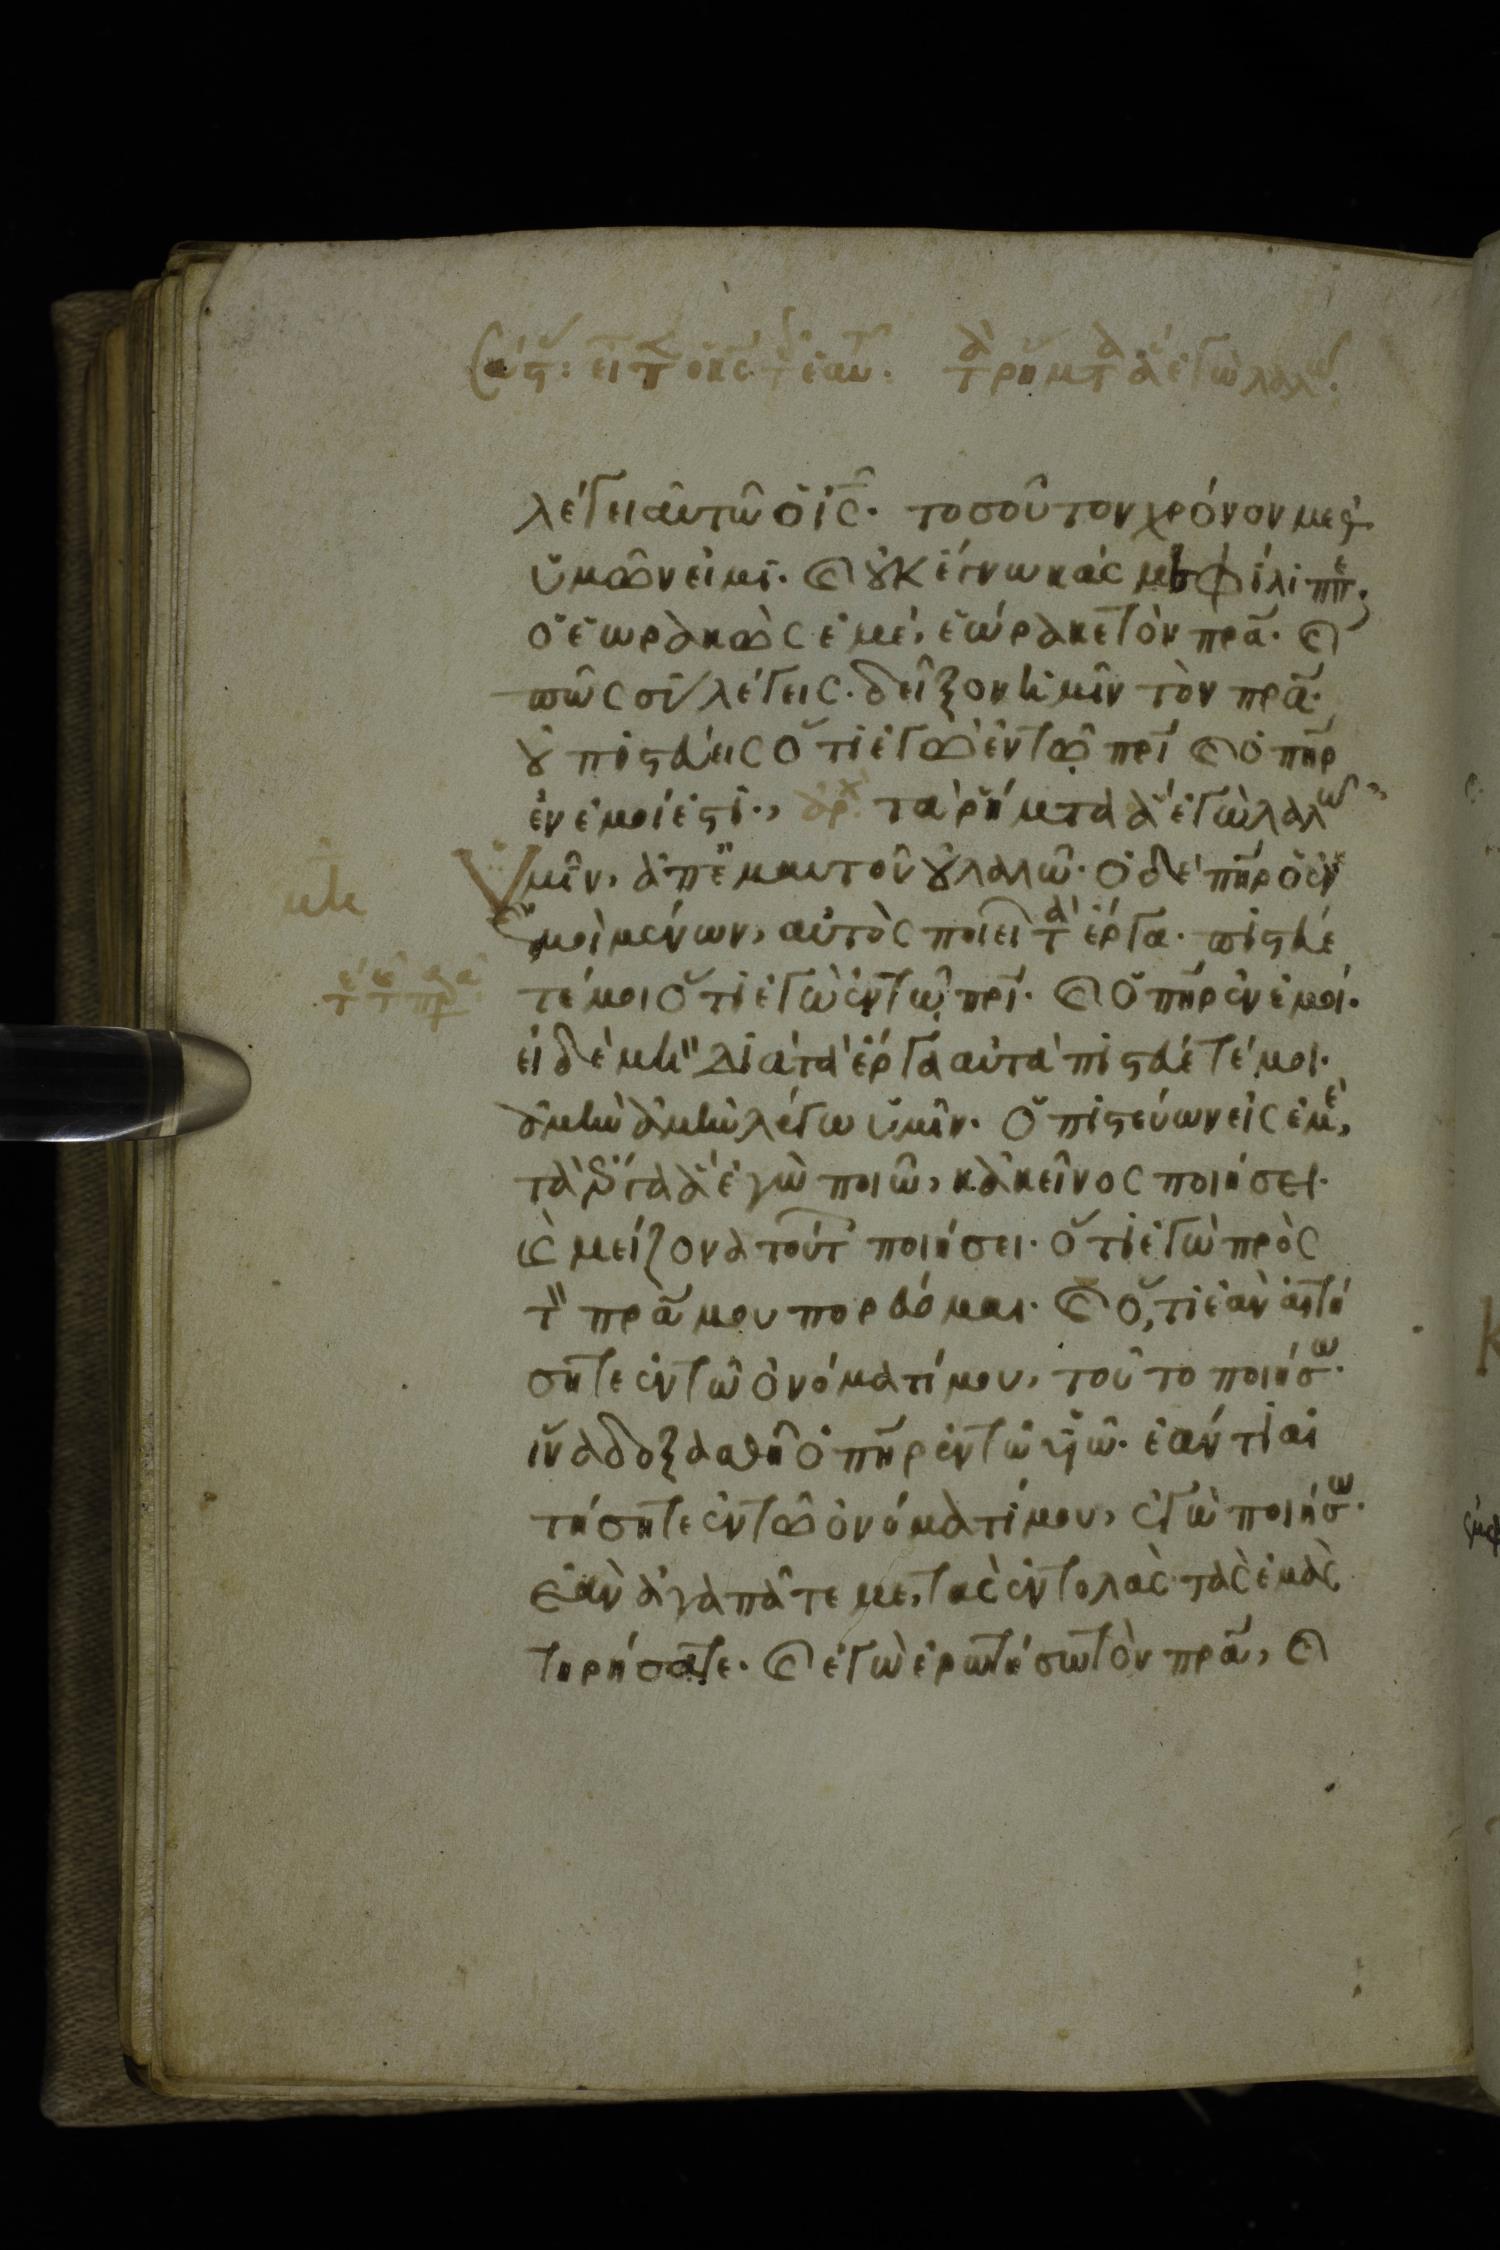 τὰ ῥήματα ἃ ἐγὼ λαλῶ.
λέγει αὐτῶ ὁ ις. τοσοῦτον χρόνον μεθ
ὑμῶν εἰμι. καὶ οὐκ ἔγνωκάς με φίλιππε;
ὁ ἑωρακὼς ἐμέ, ἑώρακε τὸν πρα. καὶ
πῶς σὺ λέγεις. δεῖξον ἡμῖν τὸν πρα.
οὐ πιστεύεις ὅτι ἐγὼ ἐν τῶ πρι καὶ ὁ πηρ
ἐν ἐμοί ἐστι., ἀρχ τὰ ῥήματα ἃ ἐγὼ λαλῶ
ὑμῖν, ἀπ' ἐμαυτοῦ οὐ λαλῶ. ὁ δὲ πηρ ὁ ἐν
ἐμοὶ μένων, αὐτὸς ποιεῖ τὰ ἔργα. πιστεύε
τέ μοι ὅτι ἐγὼ ἐν τῶ πρι. καὶ ὁ πηρ ἐν ἐμοί.
εἰ δὲ μὴ διὰ τὰ ἔργα αὐτὰ πιστεύετέ μοι.
ἀμὴν ἀμὴν λέγω ὑμῖν. ὁ πιστεύων εἰς ἐμὲ,
τὰ ἔργα ἃ ἐγὼ ποιῶ, κἀκεῖνος ποιήσει.
καὶ μείζονα τούτων ποιήσει. ὅτι ἐγὼ πρὸς
τὸν πρα μου πορεύομαι. καὶ ὅ,τι ἐὰν αἰτή
σητε ἐν τῶ ὀνόματί μου, τοῦτο ποιήσω.
ἵνα δοξασθῆ ὁ πηρ ἐν τῶ υἱῶ. ἐάν τι αἰ
τήσητε ἐν τῶ ὀνόματί μου, ἐγὼ ποιήσω.
ἐὰν ἀγαπᾶτε με, τὰς ἐντολὰς τὰς ἐμὰς
τηρήσατε. καὶ ἐγὼ ἐρωτήσω τὸν πρα, καὶ